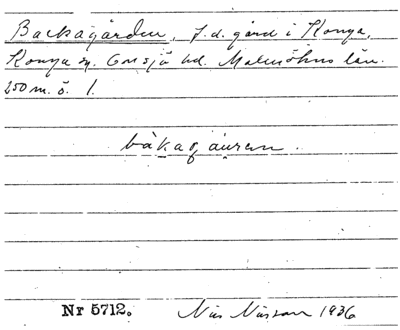 Backagården, f.d. gård i Konga,
Konga sn. Onsjö hd. Malmöhus län.
250 m. ö. l.
bákagáuren.
Nr 5712. Nils Nilsson 1936